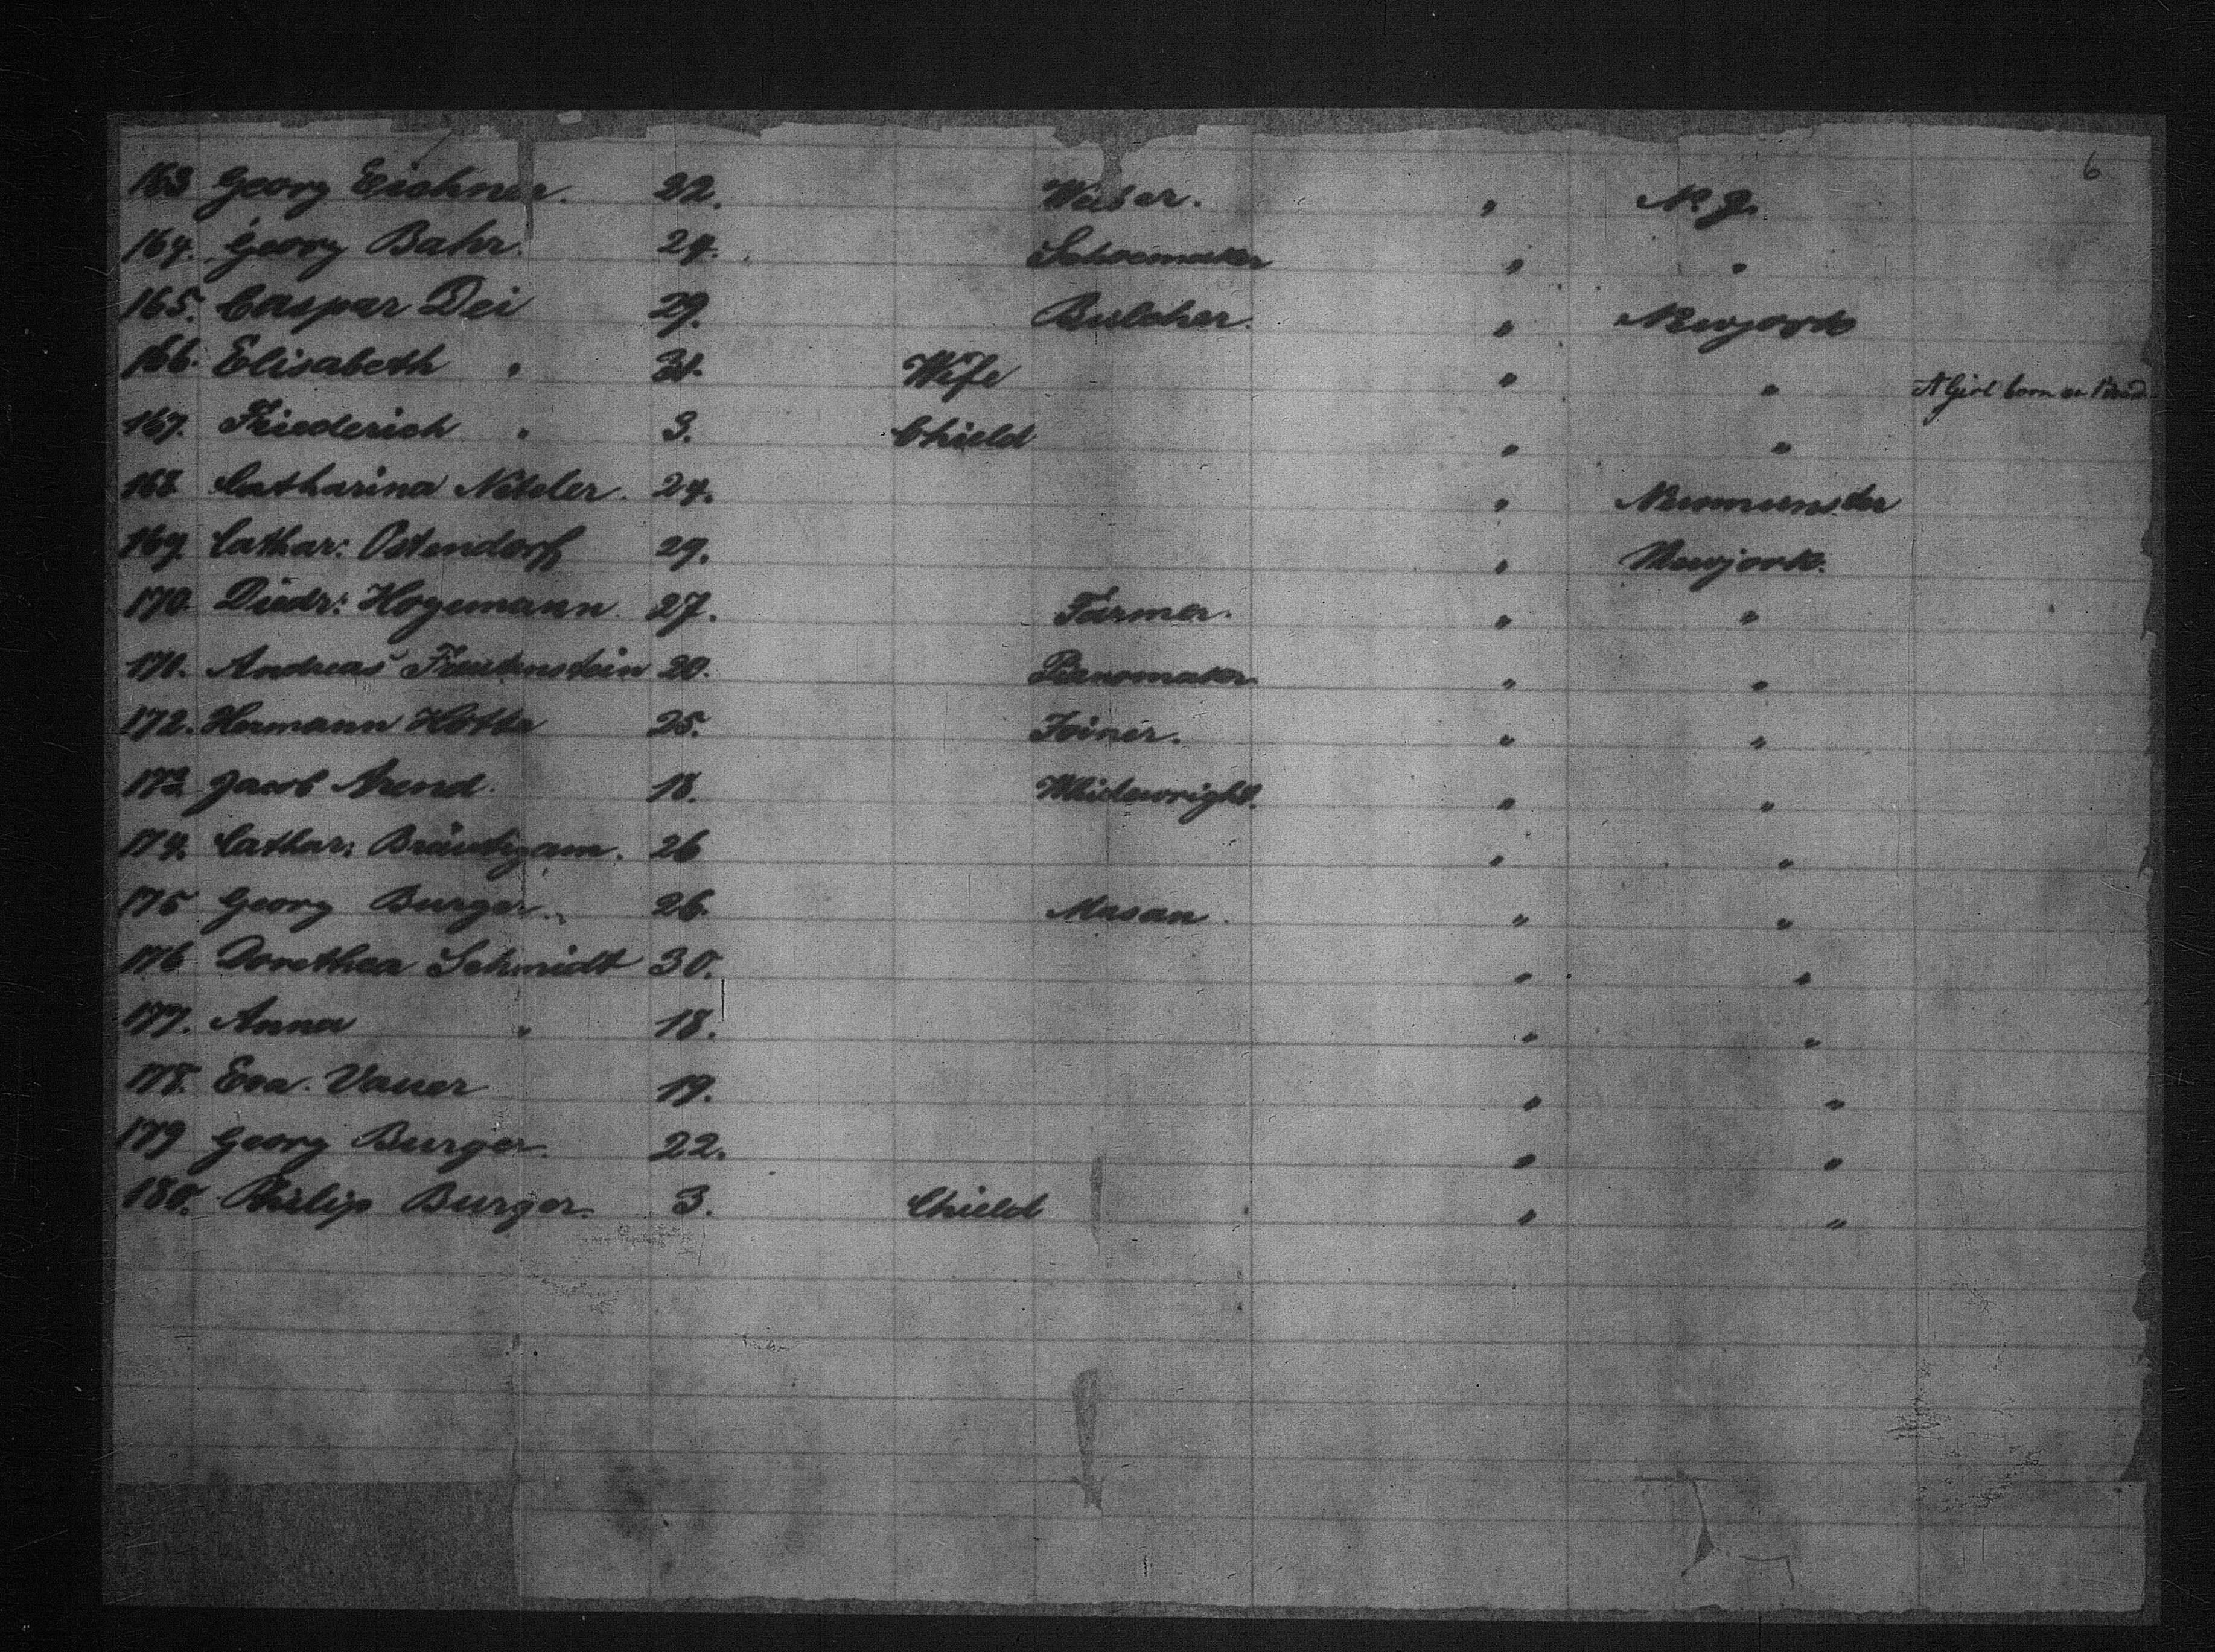 6
163 Georg Eichner. 22. Weber. " N. J.
164. Georg Bahr. 24. Schoemaker " "
165. Caspar Dei 29. Butcher. " Newjork
166. Elisabeth " 31. Wife " " A Girl born on
167. Friederich " 3. Chield " "
168 Catharina 24. " Neumunster
169 Cathar: Ostendorf 29. " Newjork.
170. Diedr: Hogemann 27. Farmer. " "
171. Andreas 20. Pianomaker " "
172. Hermann Hotte 25. Joiner. " "
173 Jacob Arend. 18. " "
174. Cathar: Bräutigam. 26 " "
175 Georg Burger. 26. Masan. " "
176 Dorothea Schmidt 30. " "
177. Anna " 18. " "
178. Eva. Vauer 19. " "
179 Georg Burger. 22. " "
180. Philip Burger. 3. Chield " "